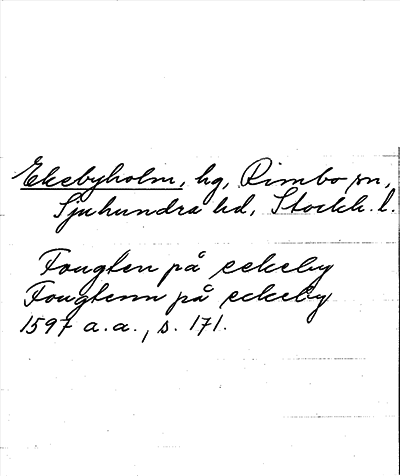 Ekebyholm, hg, Rimbo sn,
Sjuhundra hd, Stockh. l.
Fougten på eekeby
Fougtenn på eekeby
1597 a.a., s. 171.